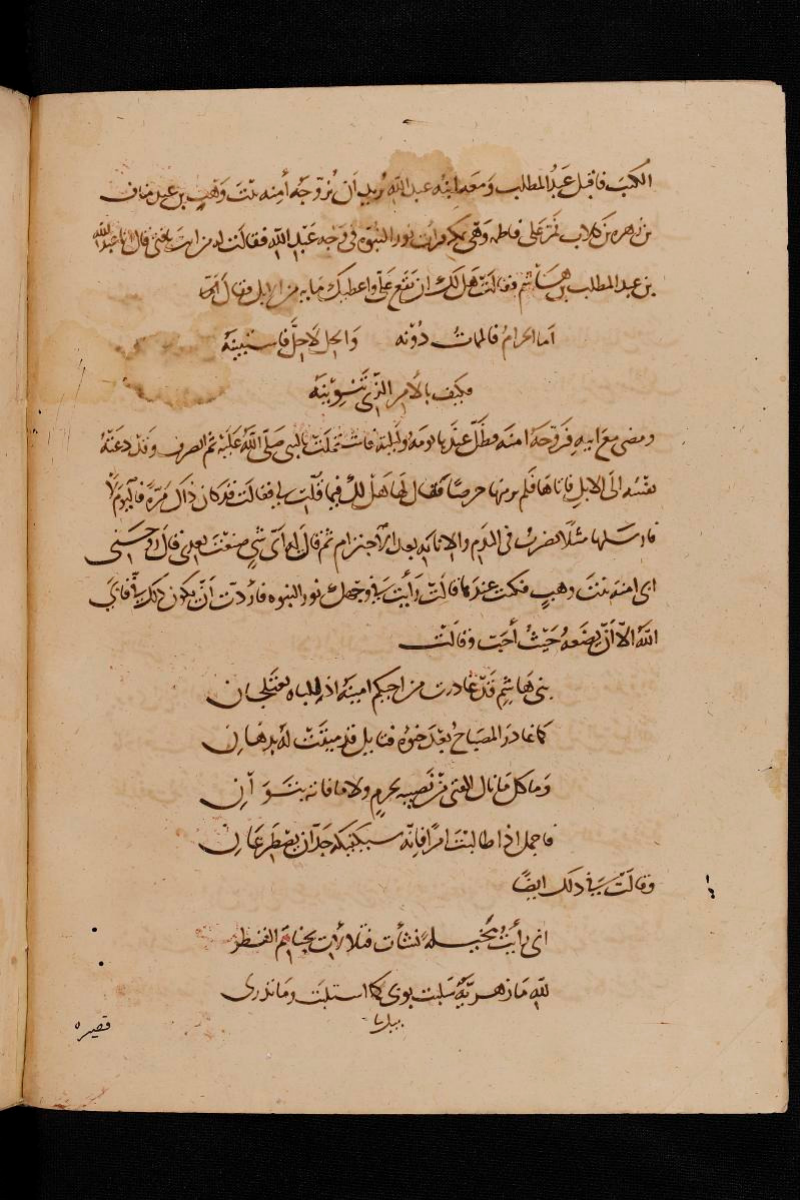 الكتب فاقبل عبد المطلب ومعه ابنه عبد الله يريد ان يزوجه أمنه بنت وهب بن عبد مناف
بن زهره بن كلاب فمر على فاطمه وهى بمكه فرات نور النبوه فى وجه عبد الله فقالت له من انت يا فتى قال انا عبد الله
بن عبد المطلب بن هاشم فقالت هل لك ان تقع على واعطيك مايه من الابل فقال
اما الحرام فالممات دونه والحل لا حل فاستبينه
فكيف بالامر الذى تنوينه
ومضى مع ابيه فزوجه امنه فظل عندها يومه وليلته فاشتملت بالنبى صلى الله عليه ثم انصرف وقد دعته
نفسه الى الابل فاتاها فلم ير منها حرصا فقال لها هل لك فيما قلت لى فقالت قد كان ذاك مره فاليوم لا
فارسلها مثلا تضرب فى الندم والانابه بعد ثم قال له اى شى صنعت بعدى قال زوجنى
ابى امنه بنت وهب فمكثت عندها قالت رأيت فى وجهك نور النبوه فاردت ان يكون ذلك فىّ فابى
الله الا ان يضعه حيث أحب وقالت
بنى هاشم قد غادرت من اخيكم امينه اذ للباه يعتلجان
كما غادر المصباح بعد خبوه فتايل قد ميثت له بدهان
وما كل ما نال الفتى من نصيبه بحزم ولا ما فاته بتوان
فاجمل اذا طالبت امرا فانه سيكفيكه جدان يصطرعان
وقالت فى ذلك ايضا
انى رأيت مخيله نشأت فتلألأت بحناتم القطر
لله ما زهريه سلبت ثوبى كما استلبت وما تدرى
قصيره